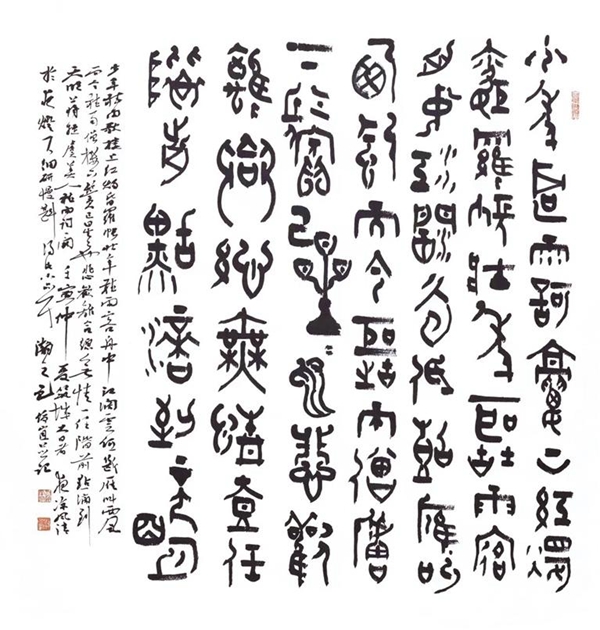 少年聽雨歌樓上紅燭
昏羅帳壯年聽雨客
舟中江闊雲低斷雁叫
西風而今聽雨僧廬
下鬢已星=也悲歡
離合總無情一任
階前點滴到天明
少年聽雨歌樓上紅燭昏羅帳壯年聽雨客舟中江闊雲低斷雁叫西風
而今聽雨僧樓下鬢已星星也悲歡離合總無情一任階前點滴到
天明蔣捷虞美人聽雨詞壬寅仲夏
於燈下細研慢題